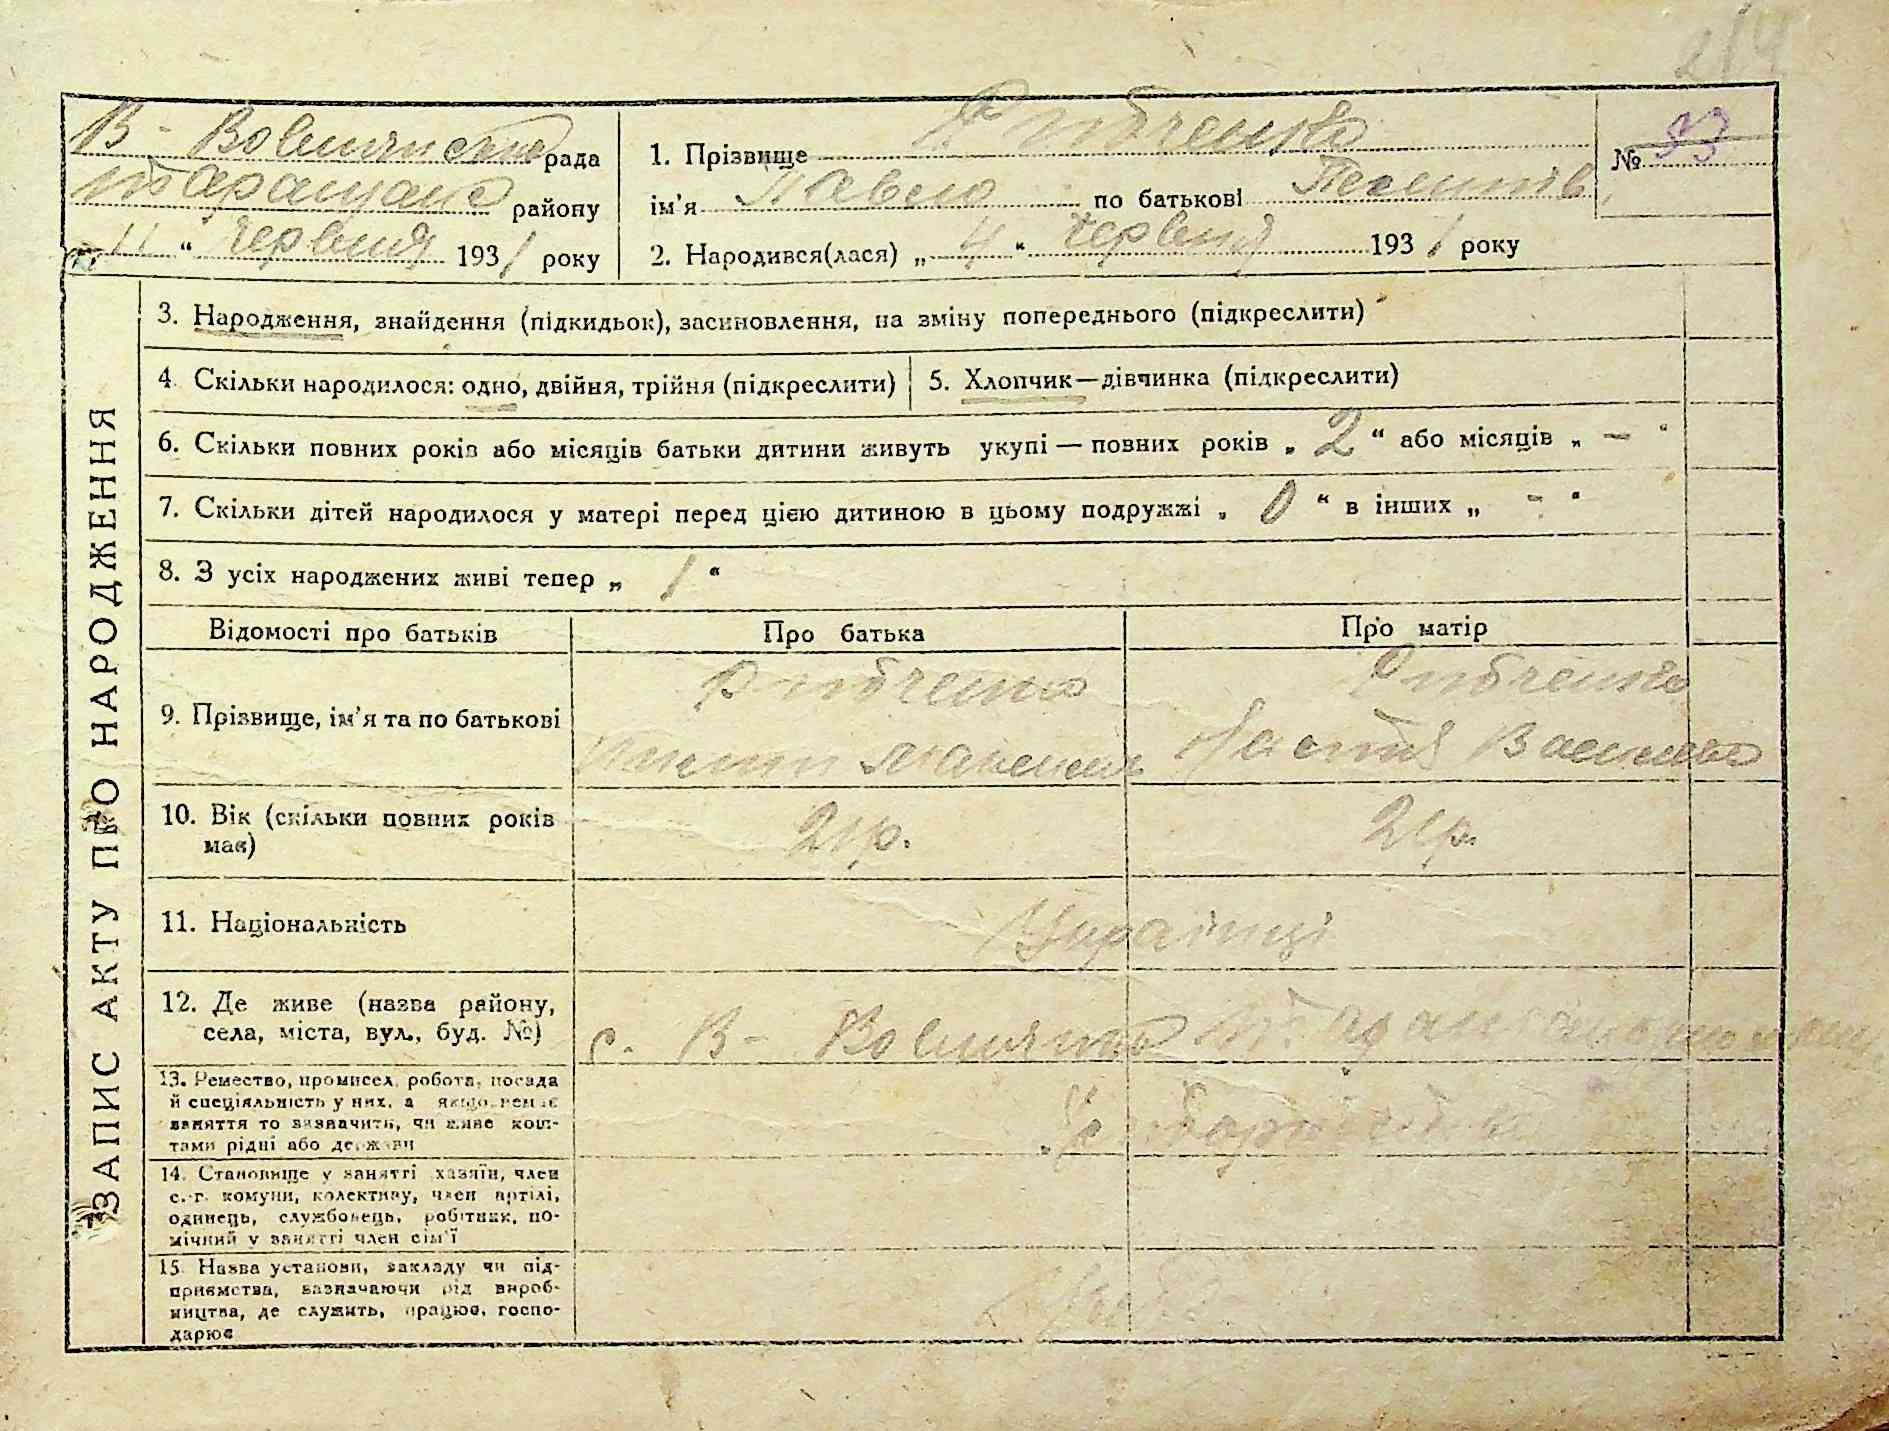 В- Вовнянська рада
Таращанс району
" 11 " Червня 1931 року
1. Прізвище
ім'я Павло по батькові
2. Народився(лася) „ 4 " Червня 1931 року
№ 53
ЗАПИС АКТУ ПРО НАРОДЖЕННЯ
3. Народження, знайдення (підкидьок), засиновлення, на зміну попереднього (підкреслити)
4. Скільки народилося: одно, двійня, трійня (підкреслити)
5. Хлопчик—дівчинка (підкреслити)
6. Скільки повних років або місяців батьки дитини живуть укупі — повних років „ 2 " або місяців „ — "
7. Скільки дітей народилося у матері перед цією дитиною в цьому подружжі „ 0 " в інших „ - "
8. З усіх народжених живі тепер „ 1 "
Відомості про батьків
Про батька
Про матір
9. Прізвище, ім'я та по батькові
Настя
10. Вік (скільки повних років
має)
21р.
21р.
11. Національність
Українці
12. Де живе (назва району,
села, міста, вул., буд. №)
с. В-
13. Ремество, промисел, робота, посада
й спеціяльність у них, а якщо немає
заняття то зазначити, чи живе кош-
тами рідні або держави
Хлібороби
14. Становище у занятті хазяїн, член
с.-г. комуни, колективу, член артілі,
одинець, службовець, робітник, по-
мічний у занятті член сім'ї
15. Назва установи, закладу чи під-
приємства, зазначаючи рід вироб-
ництва, де служить, працює, госпо-
дарює